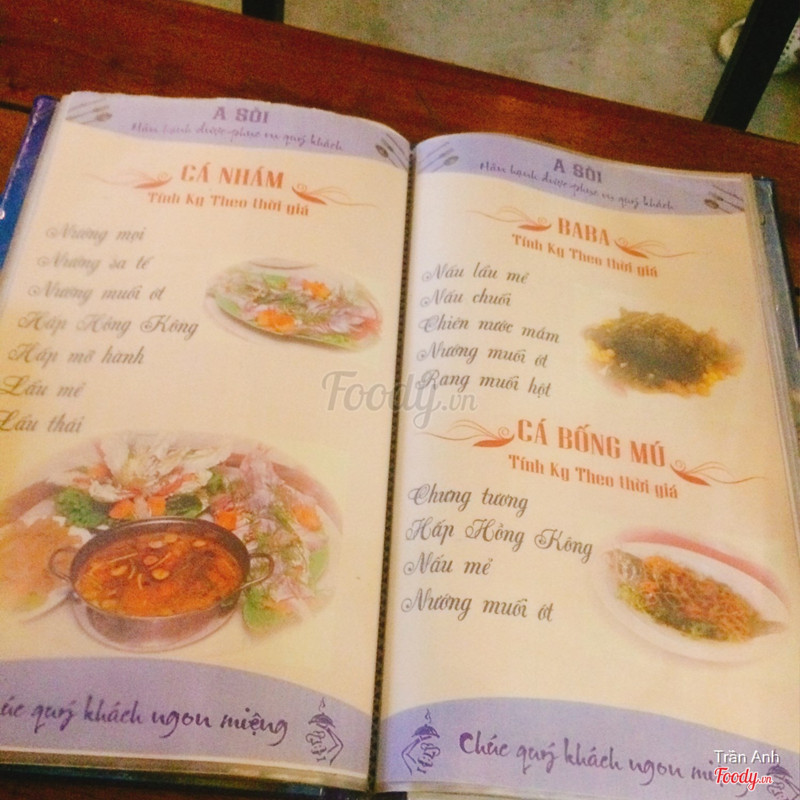 A SÒI
Hân hạnh được phục vụ quý khách
CÁ NHÁM
Tính Kg Theo thời giá
Nướng mọi
Nướng sa tế
Nướng muối ớt
Hấp Hồng Kông
Hấp mỡ hành
Lẩu mẻ
Lẩu thái
Chúc quý khách ngon miệng
A SÒI
Hân hạnh được phục vụ quý khách
BABA
Tính Kg Theo thời giá
Nấu lẩu mẻ
Nấu chuối
Chiên nước mắm
Nướng muối ớt
Rang muối hột
CÁ BỐNG MÚ
Tính Kg Theo thời giá
Chưng tương
Hấp Hồng Kông
Nấu mẻ
Nướng muối ớt
Chúc quý khách ngon miệng
Foody.vn
Trần Anh
Foody.vn